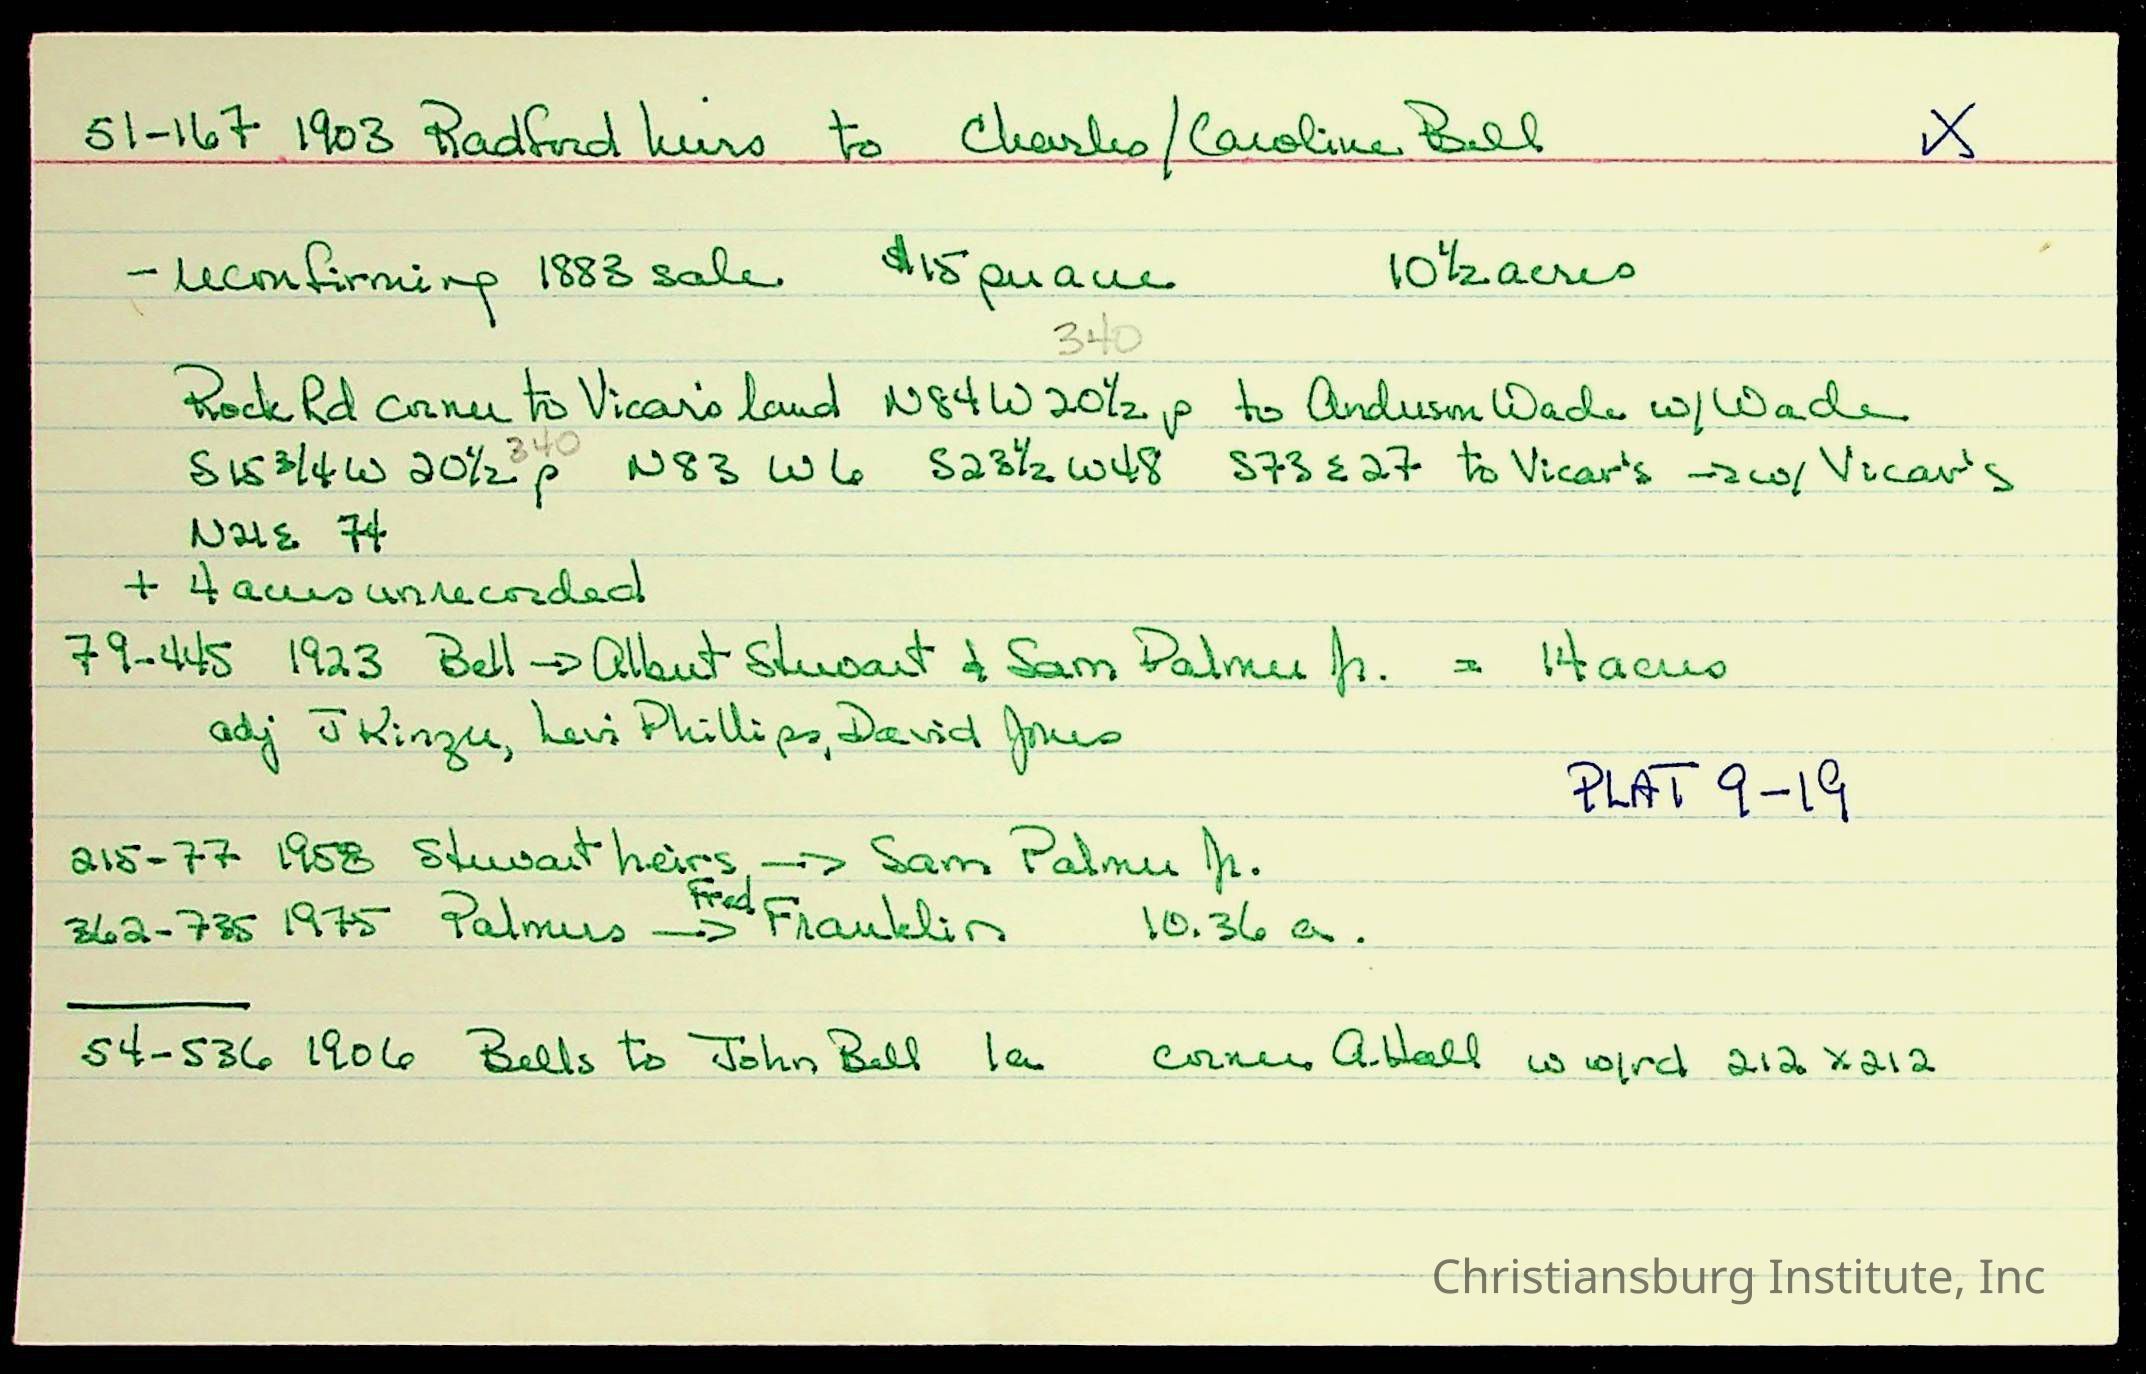 51-167 1903 Radford heirs to Charles/Caroline Bell X
- reconfirming 1883 sale $15 per acre 10 1/2 acres
340
Rock Rd corner to Vicar's land N84W 20 1/2 p to Anderson Wade w/ Wade
340
S15 3/4 W 20 1/2 p N83 W6 S23 1/2 W48 S73 E27 to Vicar's → w/ Vicar's
N21E 74
+ 4 acres unrecorded
79-445 1923 Bell → Albert Stewart & Sam Palmer Jr. = 14 acres
adj J Kinzer, Levi Phillips, David Jones
PLAT 9-19
215-77 1958 Stewart heirs → Sam Palmer Jr.
Fred
362-735 1975 Palmers → Franklin 10.36 a.
54-536 1906 Bells to John Bell 1a corner A. Hall w w/rd 212 x 212
Christiansburg Institute, Inc